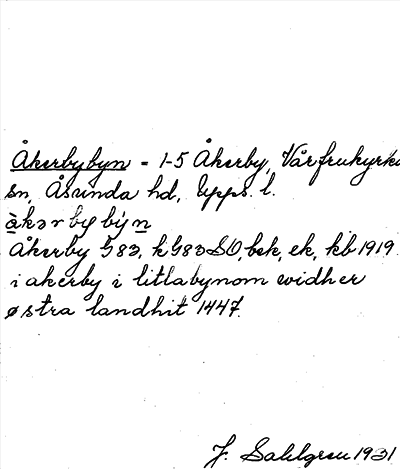 Åkerbybyn = 1-5 Åkerby, Vårfrukyrka
sn, Åsunda hd, Upps. l.
àkərbybýn
Åkerby G83, kG83SO, bek, ek, kb 1919.
i akerby i litlabynom widher
østra landhit 1447.
J. Sahlgren 1931